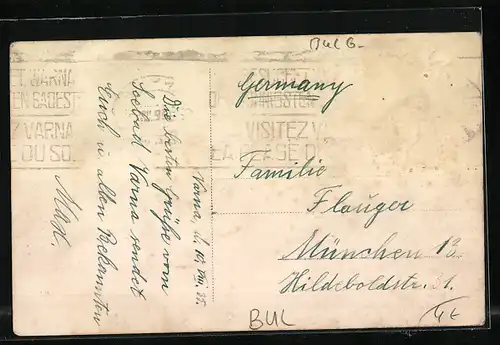 BULG-
ET WARNA
EN BADEST
Z VARNA
E DU SO
VISITEZ VA
LA PLAGE D
Germany
Familie
Flauger
München 13
Hildeboldstr. 31.
Varna, d. 10. VIII. 35.
Die besten Grüße vom
Seebad Varna sendet
Euch u. allen Bekannten
Max.
BUL
4€